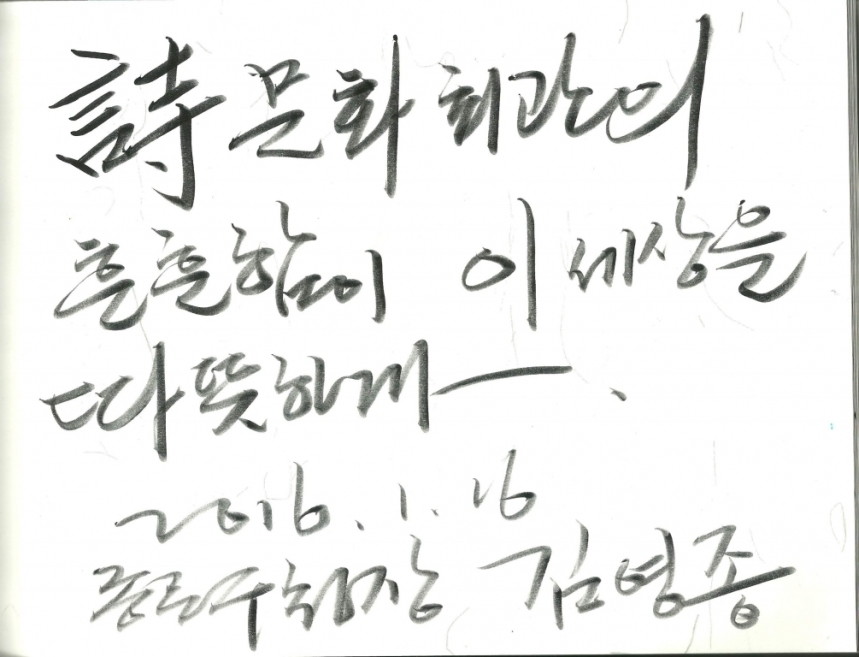 詩 문화 회관의
훈훈함이 이 세상을
따뜻하게—.
2016. 1. 16
종로구청장 김영종